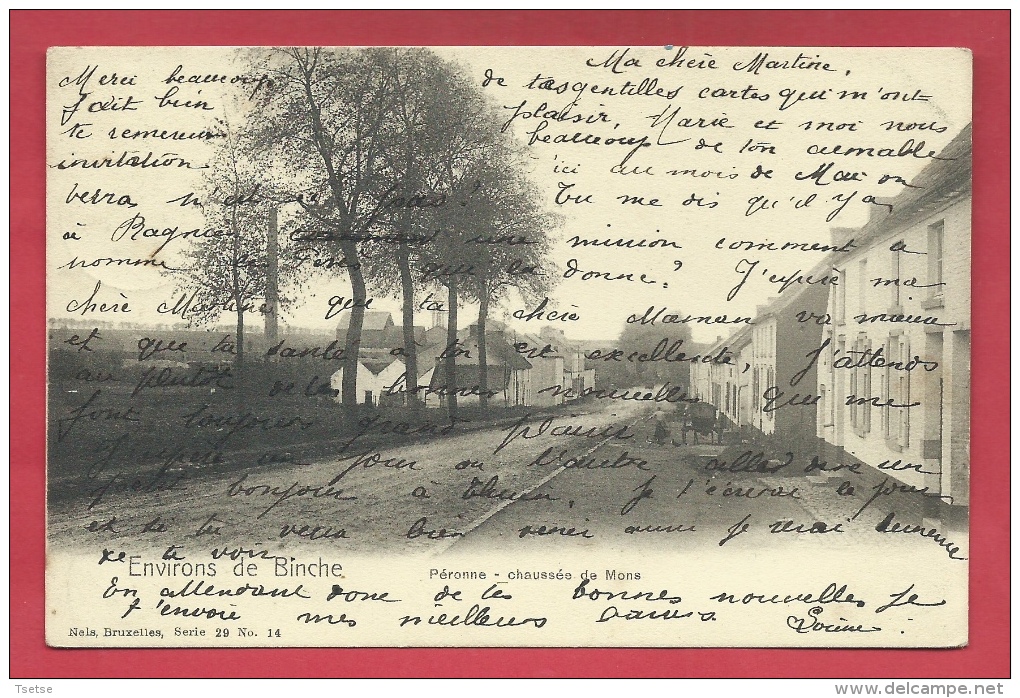 Ma chère Martine,
Merci beaucoup de tes gentilles cartes qui m'ont
fait bien plaisir, Marie et moi nous
te remercions beaucoup de ton aimable
invitation ici au mois de Mai on
verra n'est ce pas! Tu me dis qu'il y a
à une mission comment a
nomme que la donne? J'espère ma
chère Martine que ta chère Maman va mieux
et que ta santé à toi est excellente. J'attends
au plutôt de tes bonnes nouvelles qui me
font toujours grand plaisir
J'espère un jour ou l'autre aller dire un
petit bonjour à Thuin, je t'écrirai le jour
et si tu veux bien venir aussi je serai heureuse
de te voir
Environs de Binche
Péronne - chaussée de Mons
En attendant donc de tes bonnes nouvelles je
t'envoie mes meilleurs baisers Louise.
Nels, Bruxelles, Serie 29 No. 14
© Tsetse
www.delcampe.net